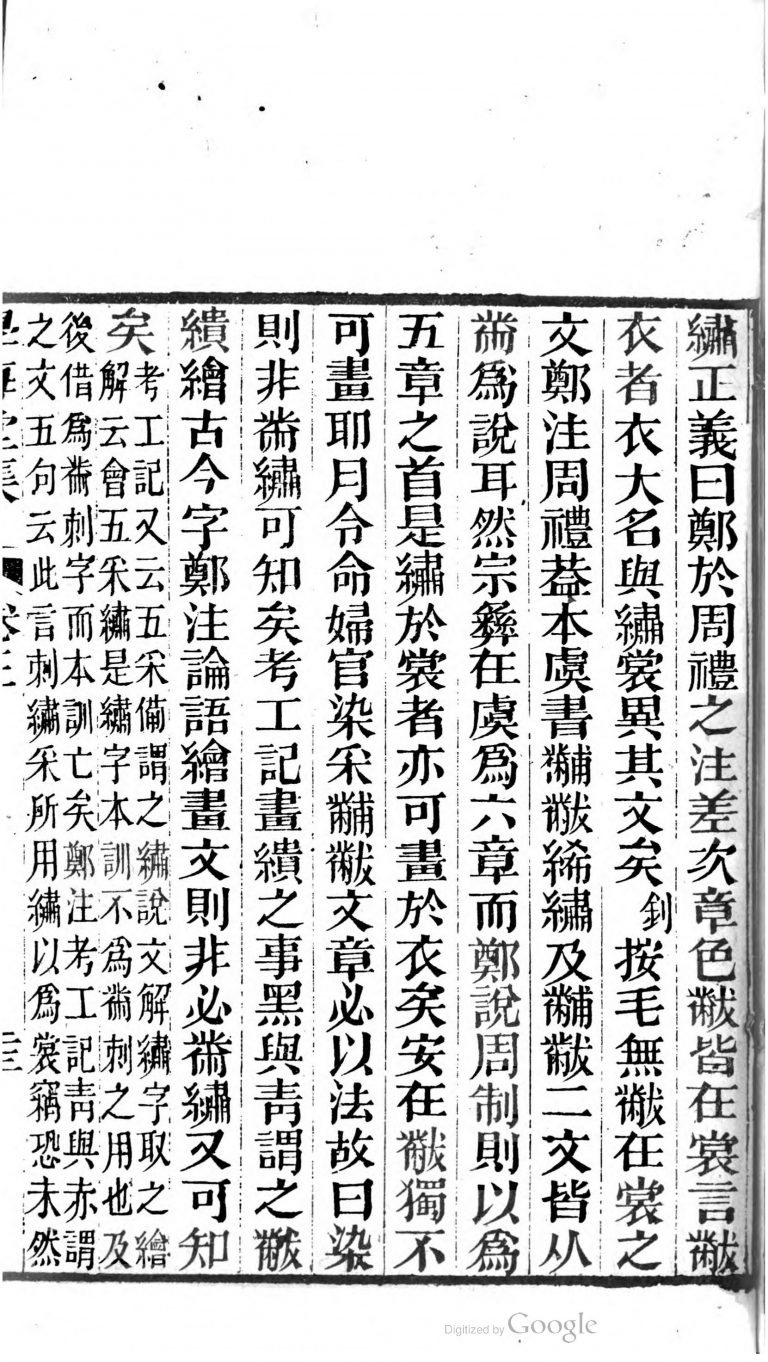 繡正義曰鄭於周禮之注差次章色黻皆在裳言黻
衣者衣大名與繡裳異其文矣釗按毛無黻在裳之
文鄭注周禮葢本虞書黼黻絺繡及黼黻二文皆从
黹爲說耳然宗彝在虞爲六章而鄭說周制則以爲
五章之首是繡於裳者亦可畫於衣矣安在黻獨不
可畫耶月令命婦官染采黼黻文章必以法故曰染
則非黹繡可知矣考工記畫繢之事黑與靑謂之黻
繢繪古今字鄭注論語繪畫文則非必黹繡又可知
矣考工記又云五采備謂之繡說文解繡字取之繪
解云會五采繡是繡字本訓不爲黹刺之用也及
後借爲黹刺字而本訓亡矣鄭注考工記靑與赤謂
之文五句云此言刺繡采所用繡以爲裳竊恐未然